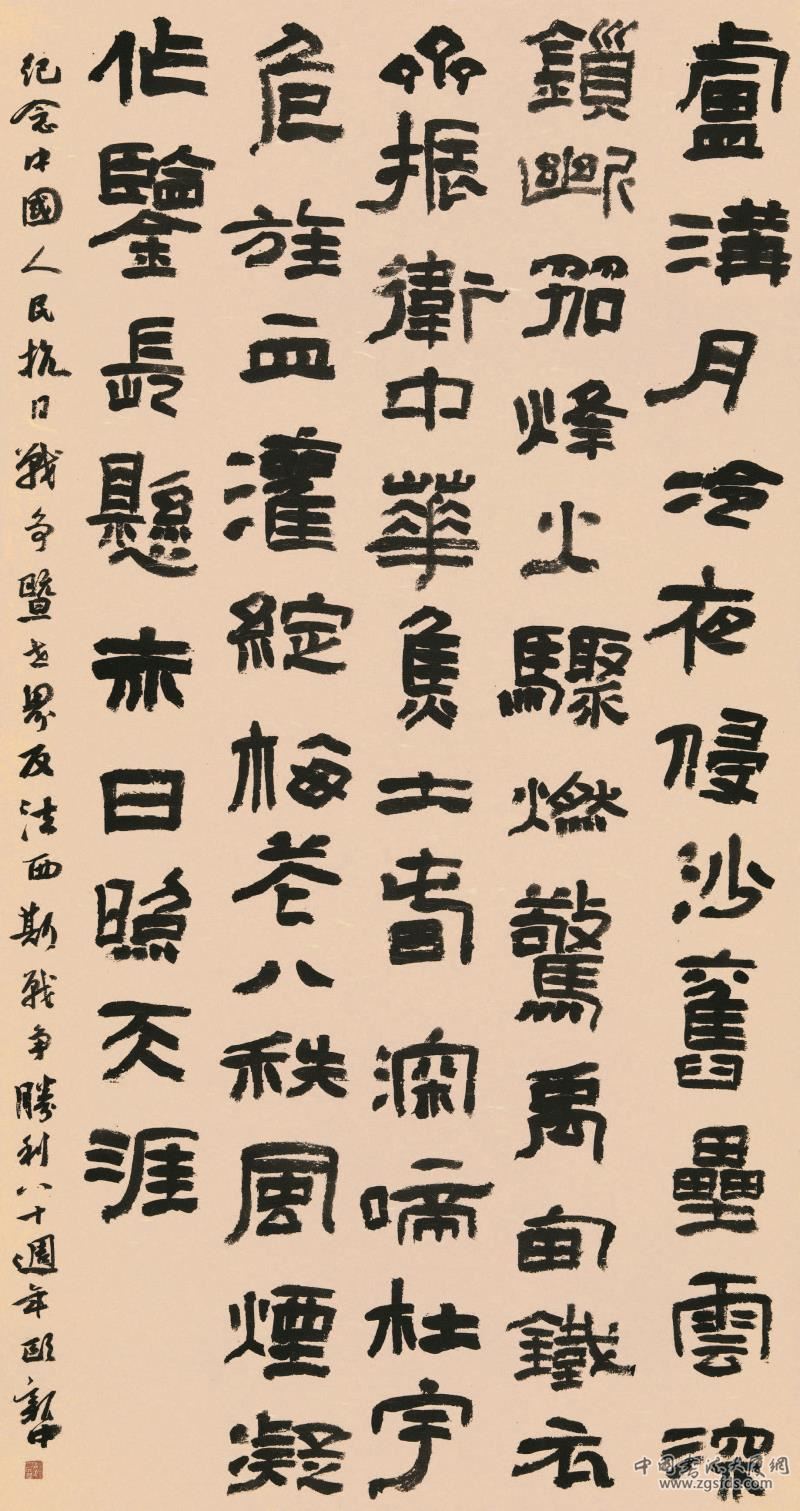 盧溝月冷夜侵沙舊壘雲深
鎖斷笳烽火驟燃驚禹甸鐵衣
齊振衛中華焦土春深啼杜宇
危旌血灌綻梅花八秩風煙凝
作鑒長懸赤日照天涯
紀念中國人民抗日戰爭暨世界反法西斯戰爭勝利八十週年歐新中
中国书法大厦网
www.zgsfds.com